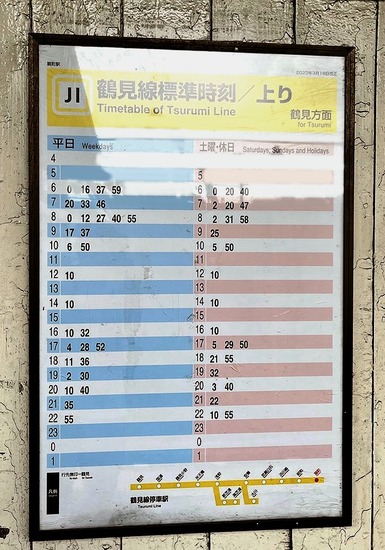 鶴見線標準時刻／上り
JI
Timetable of Tsurumi Line
鶴見方面
for Tsurumi
平日 Weekdays
土曜・休日 Saturdays, Sundays and Holidays
4
5 5
6 0 16 37 59 6 0 20 40
7 20 33 46 7 2 20 47
8 0 12 27 40 55 8 2 31 58
9 17 37 9 25
10 6 50 10 5 50
11 11
12 10 12 10
13 13
14 10 14 10
15 15
16 10 32 16 10
17 4 28 52 17 5 29 50
18 11 36 18 21 55
19 2 30 19 32
20 10 40 20 3 40
21 35 21 22
22 55 22 10 55
23 23
0 0
1 1
凡例
行先無印＝鶴見
鶴見線停車駅
Tsurumi Line